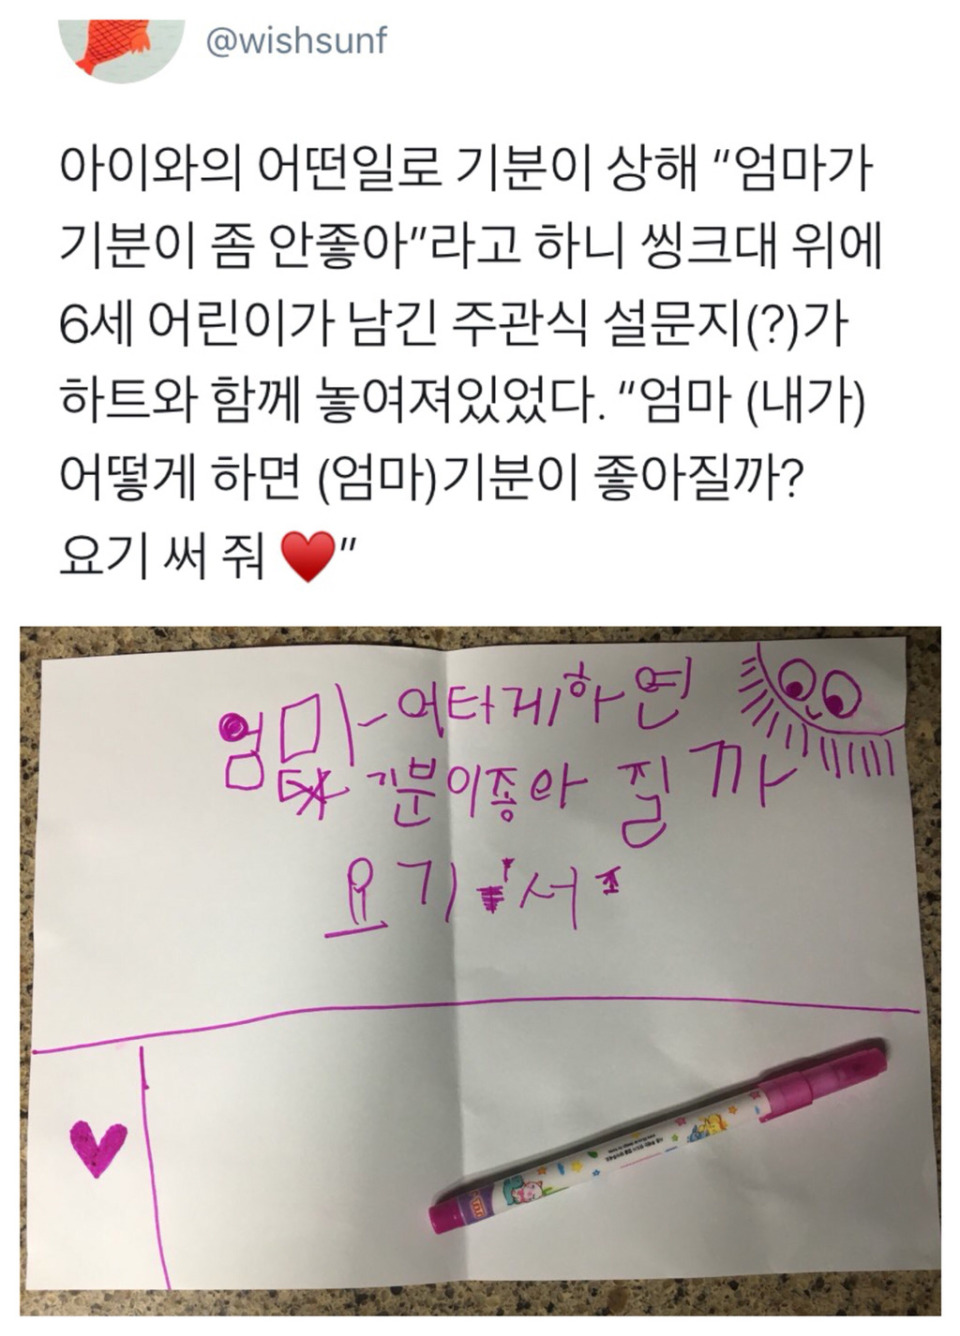 @wishsunf
아이와의 어떤일로 기분이 상해 "엄마가
기분이 좀 안좋아"라고 하니 씽크대 위에
6세 어린이가 남긴 주관식 설문지(?)가
하트와 함께 놓여져있었다. "엄마 (내가)
어떻게 하면 (엄마)기분이 좋아질까?
요기 써 줘 ♥️"
엄마 어터게하면
기분이좋아 질까
요기 서 조